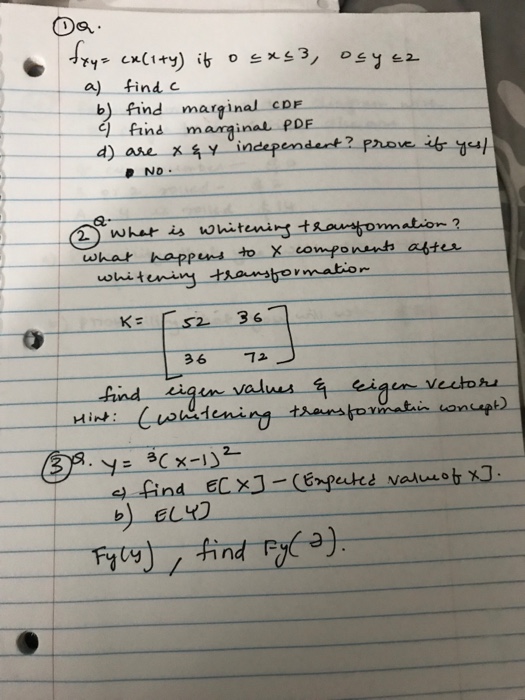 ① Q.
fxy = cx(1+y) if 0 ≤ x ≤ 3, 0 ≤ y ≤ 2
a) find c
b) find marginal CDF
c) find marginal PDF
d) are x & y independent? prove if yes/
NO.
② Q. What is whitening transformation?
what happens to X components after
whitening transformation
K = [ 52 36
36 72 ]
find eigen values & eigen vectors
Hint: (whitening transformatin concept)
③ Q. y = 3(x-1)²
a) find E[X] - (Expected value of X].
b) E[Y]
Fy(y), find Fy(2).